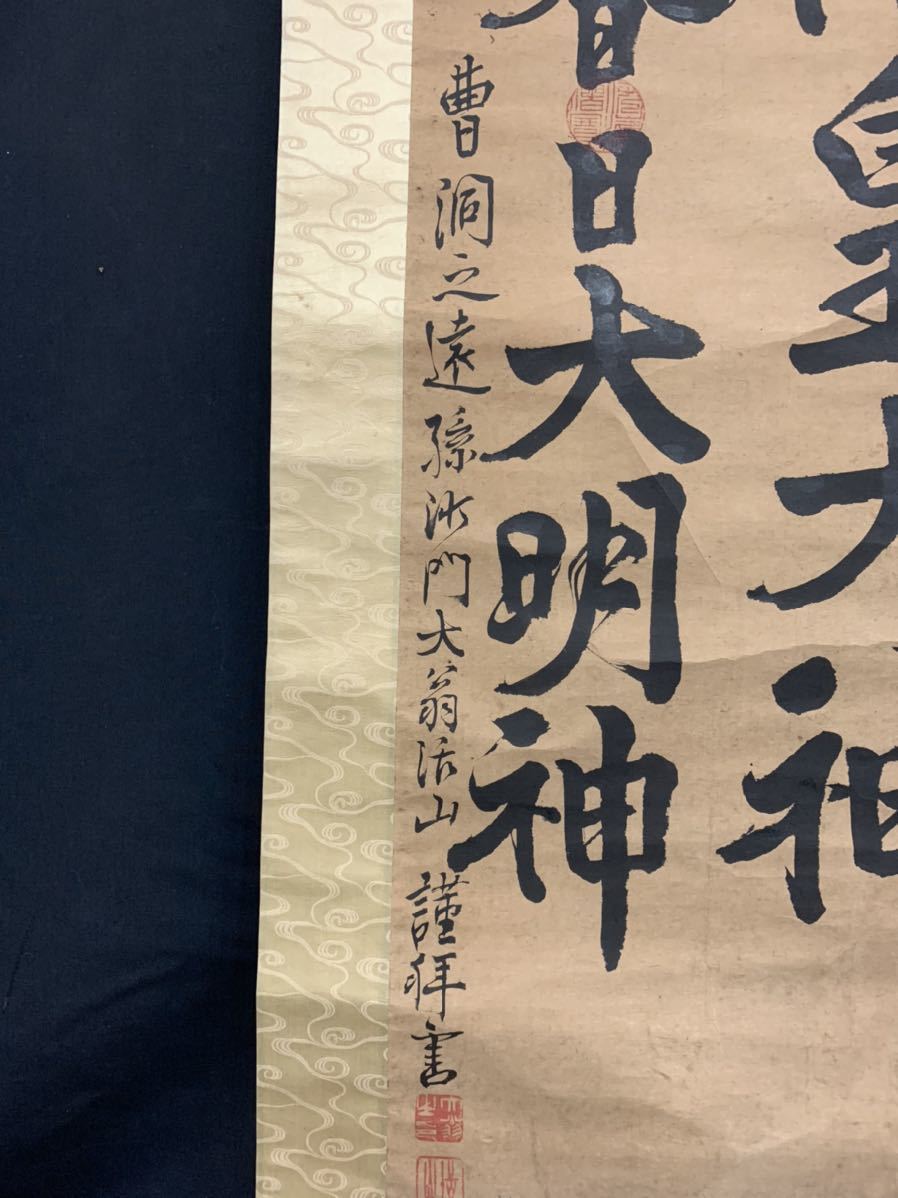 皇大神
春日大明神
曹洞之遠孫沙門大翁活山謹拜書